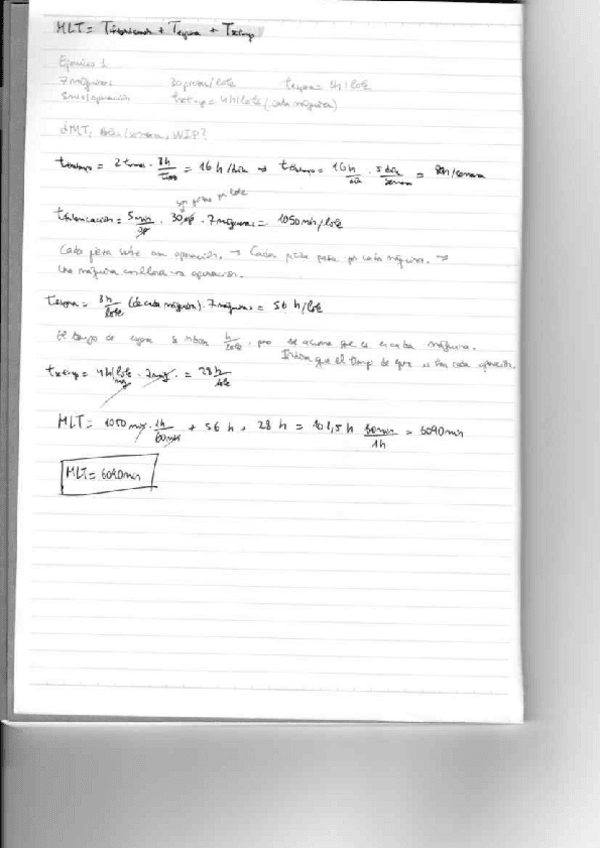 MLT = Tfabricación + Tespera + Tsetup
Ejercicio 1
7 máquinas 30 piezas/lote tespera = 8h/lote
5min/operación tsetup = 4h/lote (cada máquina)
¿MLT, /semana, WIP?
ttrabajo = 2 turnos · 8h/turno = 16 h/día → ttrabajo = 16h/día · 5 día/semana = 80h/semana
piezas por lote
tfabricación = 5min/op · 30 op · 7 máquinas = 1050 min/lote
Cada pieza sufre una operación. → Cada pieza pasa por cada máquina. →
Una máquina conlleva una operación.
tespera = 8h/lote (de cada máquina) · 7 máquinas = 56 h/lote
El tiempo de espera se indica h/lote, pero se asume que es en cada máquina.
Indica que el tiempo de espera es en cada operación.
tsetup = 4h/lote/maq · 7maq. = 28 h/lote
MLT = 1050 min · 1h/60min + 56 h + 28 h = 101,5 h 60min/1h = 6090min
MLT = 6090min